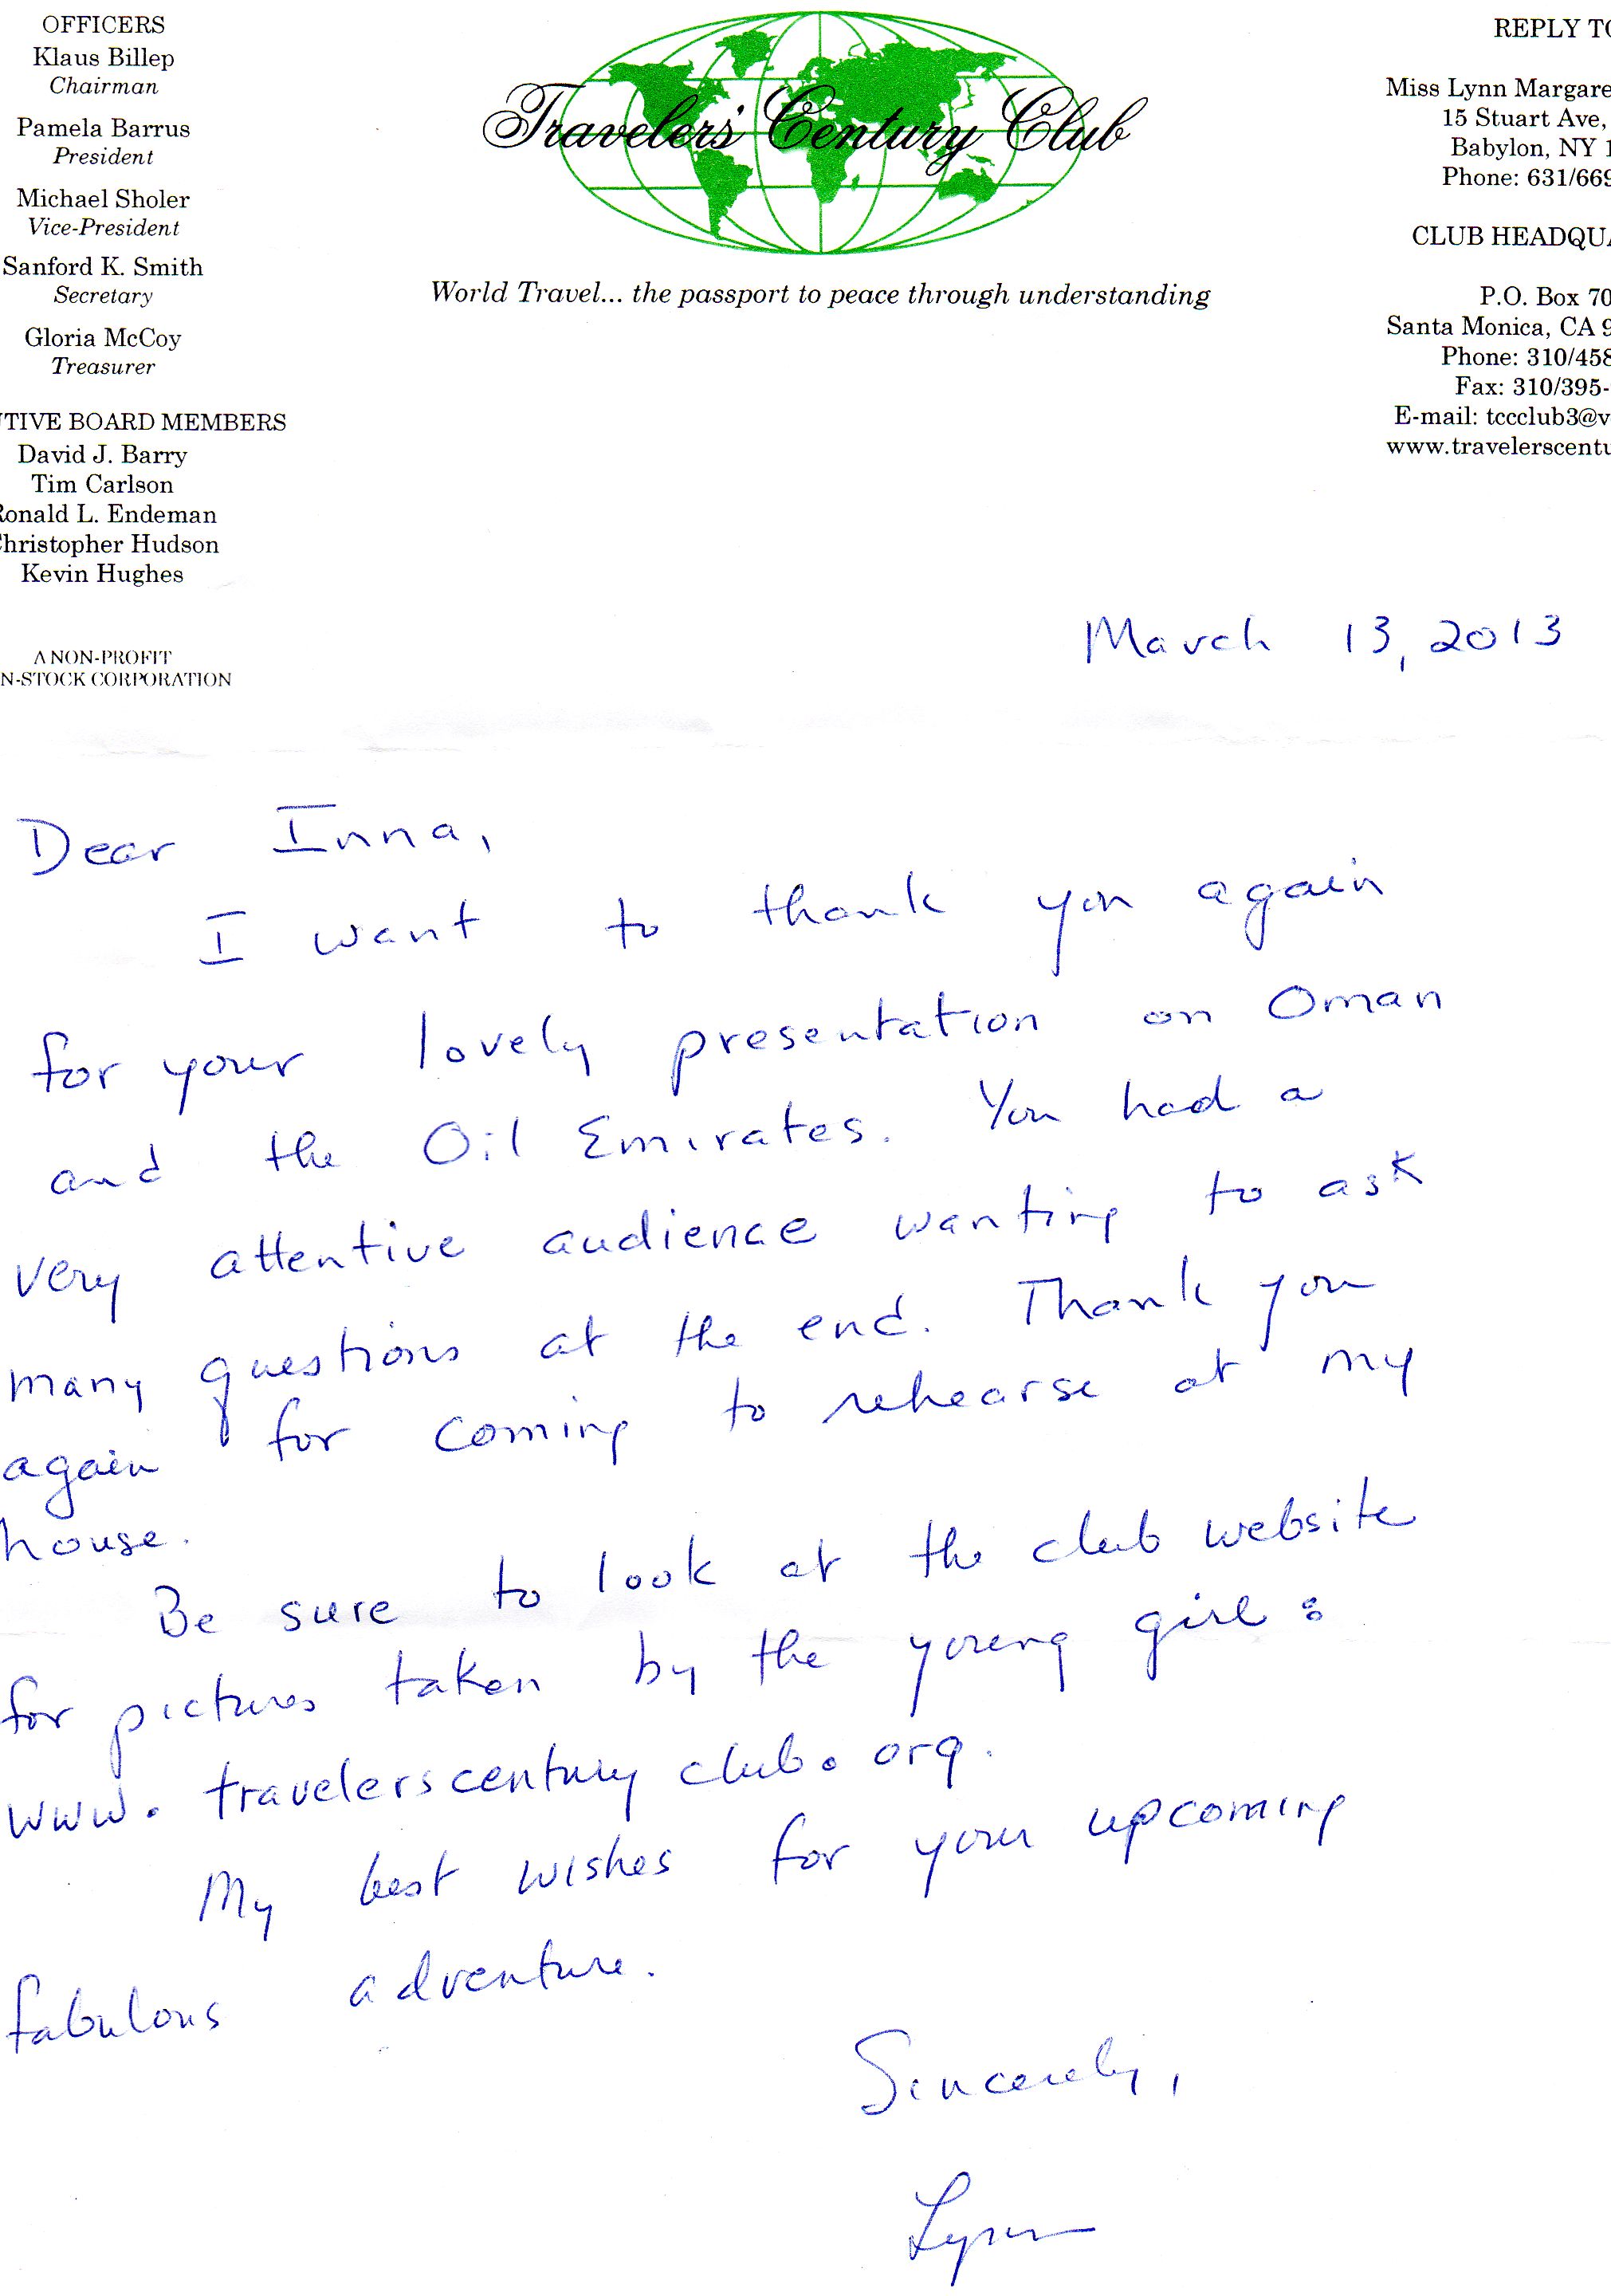 OFFICERS
Klaus Billep
Chairman
Pamela Barrus
President
Michael Sholer
Vice-President
Sanford K. Smith
Secretary
Gloria McCoy
Treasurer
TIVE BOARD MEMBERS
David J. Barry
Tim Carlson
Ronald L. Endeman
Christopher Hudson
Kevin Hughes
A NON-PROFIT
N-STOCK CORPORATION
Travelers' Century Club
World Travel... the passport to peace through understanding
REPLY TO
Miss Lynn Margare
15 Stuart Ave,
Babylon, NY 1
Phone: 631/669
CLUB HEADQUA
P.O. Box 70
Santa Monica, CA 9
Phone: 310/458
Fax: 310/395-
E-mail: tccclub3@v
www.travelerscentu
March 13, 2013
Dear Inna,
I want to thank you again
for your lovely presentation on Oman
and the Oil Emirates. You had a
very attentive audience wanting to ask
many questions at the end. Thank you
again for coming to rehearse at my
house.
Be sure to look at the club website
for pictures taken by the young girl:
www.travelerscenturyclub.org.
My best wishes for your upcoming
fabulous adventure.
Sincerely,
Lynn